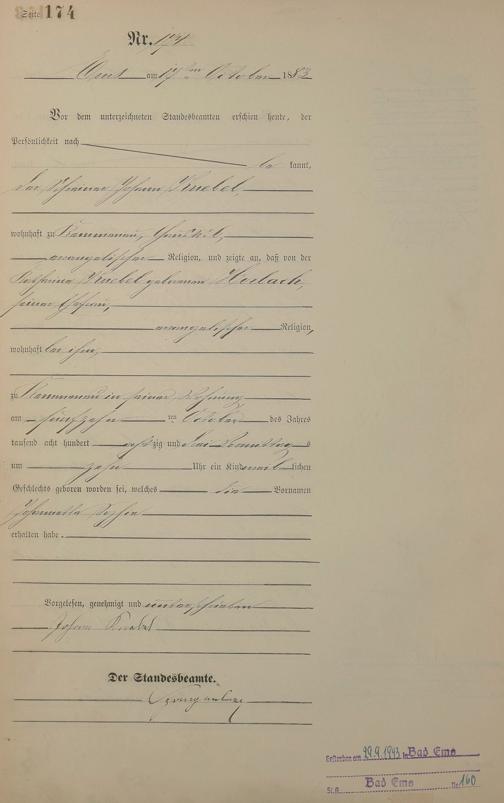 Seite 174
Nr. 174
Ems am 17ten October 1883
Vor dem unterzeichneten Standesbeamten erschien heute, der
Persönlichkeit nach
be kannt,
der Johann Knebel,
wohnhaft zu
evangelischer Religion, und zeigte an, daß von der
Katharina Knebel geborenen
seiner Ehefrau,
evangelischer Religion,
wohnhaft bei ihm,
zu in seiner Wohnung
am fünfzehn ten October des Jahres
tausend acht hundert achtzig und drei Vormittags
um zehn Uhr ein Kind weiblichen
Geschlechts geboren worden sei, welches die Vornamen
Sophie
erhalten habe.
Vorgelesen, genehmigt und unterschrieben
Johann Knebel
Der Standesbeamte.
Gestorben am 29.9.1943 in Bad Ems
St. A. Bad Ems Nr. 160